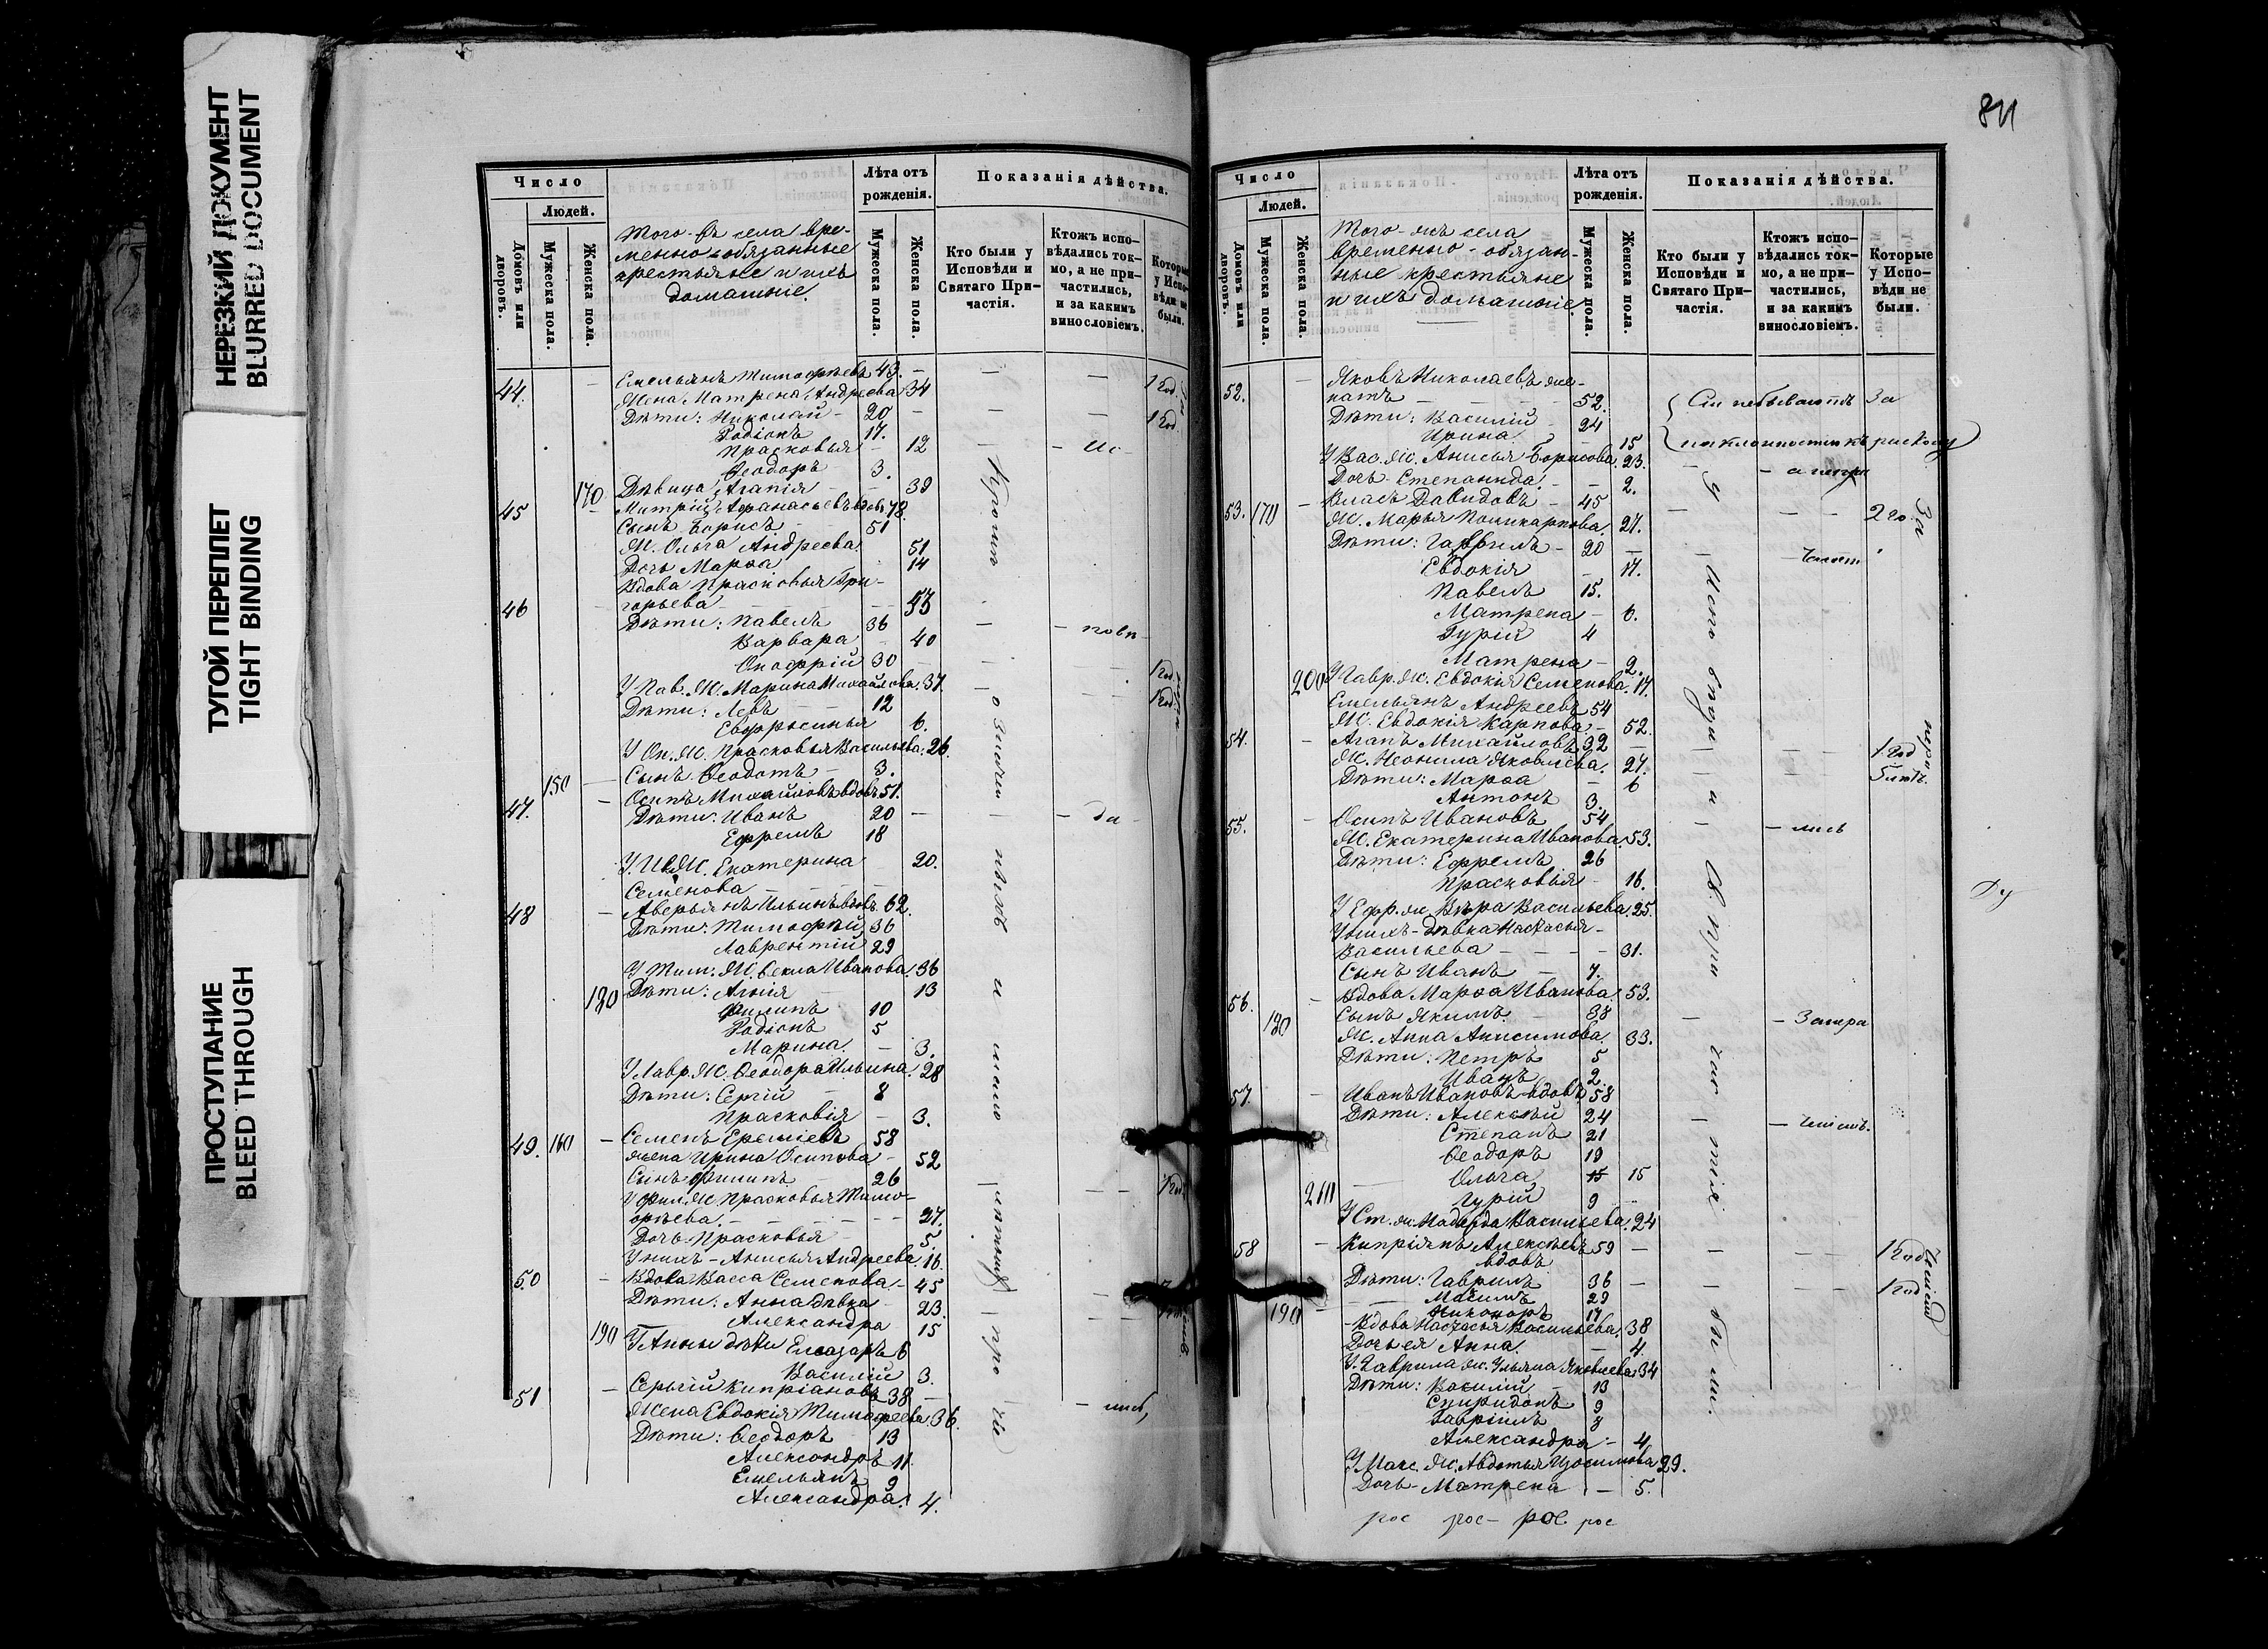 НЕРЕЗКИЙ ДОКУМЕНТ
BLURRED DOCUMENT
ТУГОЙ ПЕРЕПЛЕТ
TIGHT BINDING
ПРОСТУПАНИЕ
BLEED THROUGH
Число
Людей.
Домовъ или дворовъ.
Мужеска пола.
Женска пола.
Того-жъ села вре-
менно-обязанные
крестьяне и ихъ
домашніе.
Лѣта отъ рожденія.
Мужеска пола.
Женска пола.
Показанія дѣйства.
Кто были у Исповѣди и Святаго При-частія.
Ктожъ испо-вѣдались ток-мо, а не при-частились, и за какимъ винословіемъ.
Которые у Испо-вѣди не были.
44. Емельянъ Тимофѣевъ 43. 1 год.
Жена Матрена Андреева 34
Дѣти: Николай 20 1 год.
Родіонъ 17.
Прасковья 12
Ѳеодоръ 3.
170 Дѣвица Агапія 39
45 Митрій Афанасьевъ вдов. 78.
Сынъ Борисъ 51
Ж. Ольга Андреева 51
Дочь Марѳа 14
Вдова Прасковья Гри-
46 горьева
Дѣти: Павелъ 36
Варвара 40
Онофрій 30
У Пав. Ж. Марина Михайлова. 37.
Дѣти: Левъ 12
Евфросинья 6.
У Он. Ж. Прасковья Васильева. 26
150 Сынъ Ѳеодотъ 3.
47. Осипъ Михайловъ вдовъ 51.
Дѣти: Иванъ 20
Ефремъ 18
У Ив. Ж. Екатерина 20.
Семенова
48 Аверьянъ Ильинъ вдовъ 62.
Дѣти: Тимофѣй 36
Лаврентій 29
У Тим. Ж. Ѳекла Иванова. 36
180 Дѣти: Агнія 13
Филипъ 10
Родіонъ 5
Марина. 3.
У Лавр. Ж. Ѳеодора Ильина. 28
Дѣти: Сергій 8
Прасковія 3.
49. 160 Семенъ Еремѣевъ 58
жена Ирина Осипова 52
Сынъ Филипъ 26 1 год.
У Фил. Ж. Прасковья Тимо-
фѣева. 27.
Дочь Прасковья 5.
У нихъ - Анисья Андреева. 16.
50 Вдова Васса Семенова 45
Дѣти: Анна дѣвка 23.
Александра 15
190 У Анны дѣти Елеазаръ 6
Василій 3.
51 Сергій Кипріановъ 38
Жена Евдокія Тимофеева 36.
Дѣти: Ѳеодоръ 13
Александръ 11.
Емельянъ 9
Александра. 4.
Число
Людей.
Домовъ или дворовъ.
Мужеска пола.
Женска пола.
Того-жъ села
временно-обязан-
ные крестьяне
и ихъ домашніе
Лѣта отъ рожденія.
Мужеска пола.
Женска пола.
Показанія дѣйства.
Кто были у Исповѣди и Святаго При-частія.
Ктожъ испо-вѣдались ток-мо, а не при-частились, и за какимъ винословіемъ.
Которые у Испо-вѣди не были.
52. Яковъ Николаевъ же-
натъ 52.
Дѣти: Василій 24
Ирина. 15
У Вас. ж. Анисья Борисова. 23.
Дочь Степанида. 2.
53. 170 Власъ Давидовъ 45
Ж. Марья Поликарпова. 27.
Дѣти: Гавріилъ 20
Евдокія 17.
Павелъ 15.
Матрена 6.
Гурій 4
Матрена 2.
200 У Гавр. ж. Евдокія Семенова. 17.
Емельянъ Андреевъ 54
Ж. Евдокія Карпова. 52.
54. Агапъ Михайловъ 32 1 год
Ж. Неонила Яковлева. 27.
Дѣти: Марѳа 6
Антонъ 3.
55. Осипъ Ивановъ 54
Ж. Екатерина Иванова 53.
Дѣти: Ефремъ 26
Прасковія 16.
У Ефр. ж. Вѣра Васильева. 25.
У нихъ - дѣвка Настасья
Васильева 31.
Сынъ Иванъ 7.
56. Вдова Марѳа Иванова. 53.
180 Сынъ Якимъ. 38
Ж. Анна Анисимова. 33.
Дѣти: Петръ 5
Иванъ 2.
57. Иванъ Ивановъ вдовъ 58
Дѣти: Алексѣй 24
Степанъ 21
Ѳеодоръ 19
Ольга 15 15
210 Гурій 9
У Ст. ж. Надежда Васильева. 24
58 Кипріянъ Алексѣевъ 59 1 год
вдовъ
Дѣти: Гаврилъ 36 1 год
Максимъ 29
190 Никоноръ 17
Вдова Настасья Васильева. 38
Дочь ея Анна. 4.
У Гаврила ж. Ульяна Яковлева 34
Дѣти: Василій 13
Спиридонъ 9
Гавріилъ 7
Александра 4
У Макс. Ж. Авдотья Изосимова 29.
Дочь Матрена 5.
рос рос- рос рос